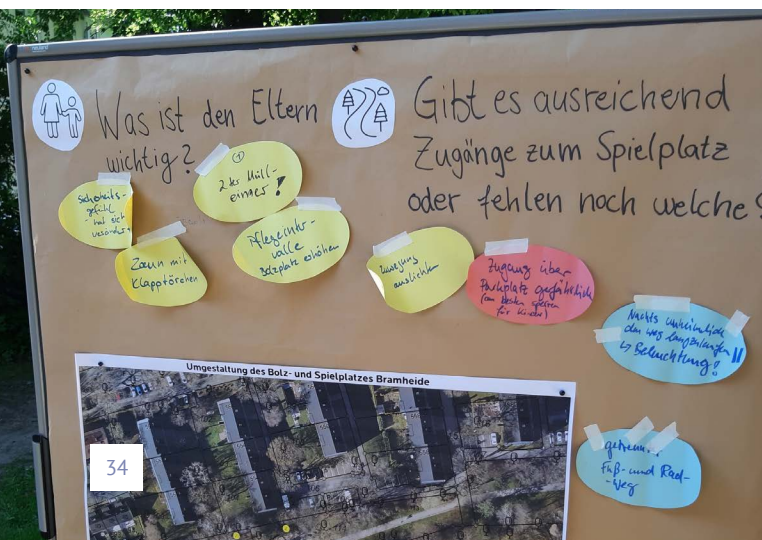 Was ist den Eltern
wichtig?
Gibt es ausreichend
Zugänge zum Spielplatz
oder fehlen noch welche?
Sicherheits-
gefühl
hat sich
verändert
①
2ter Müll-
eimer!
Zaun mit
Klapptörchen
Pflegeinter-
valle
Bolzplatz erhöhen
auslichten
Zugang über
Parkplatz gefährlich
(am besten sperren
für Kinder)
Nachts unheimlich
den Weg langzulaufen
↳ Beleuchtung!!
getrennt.
Fuß- und Rad-
-weg
Umgestaltung des Bolz- und Spielplatzes Bramheide
34